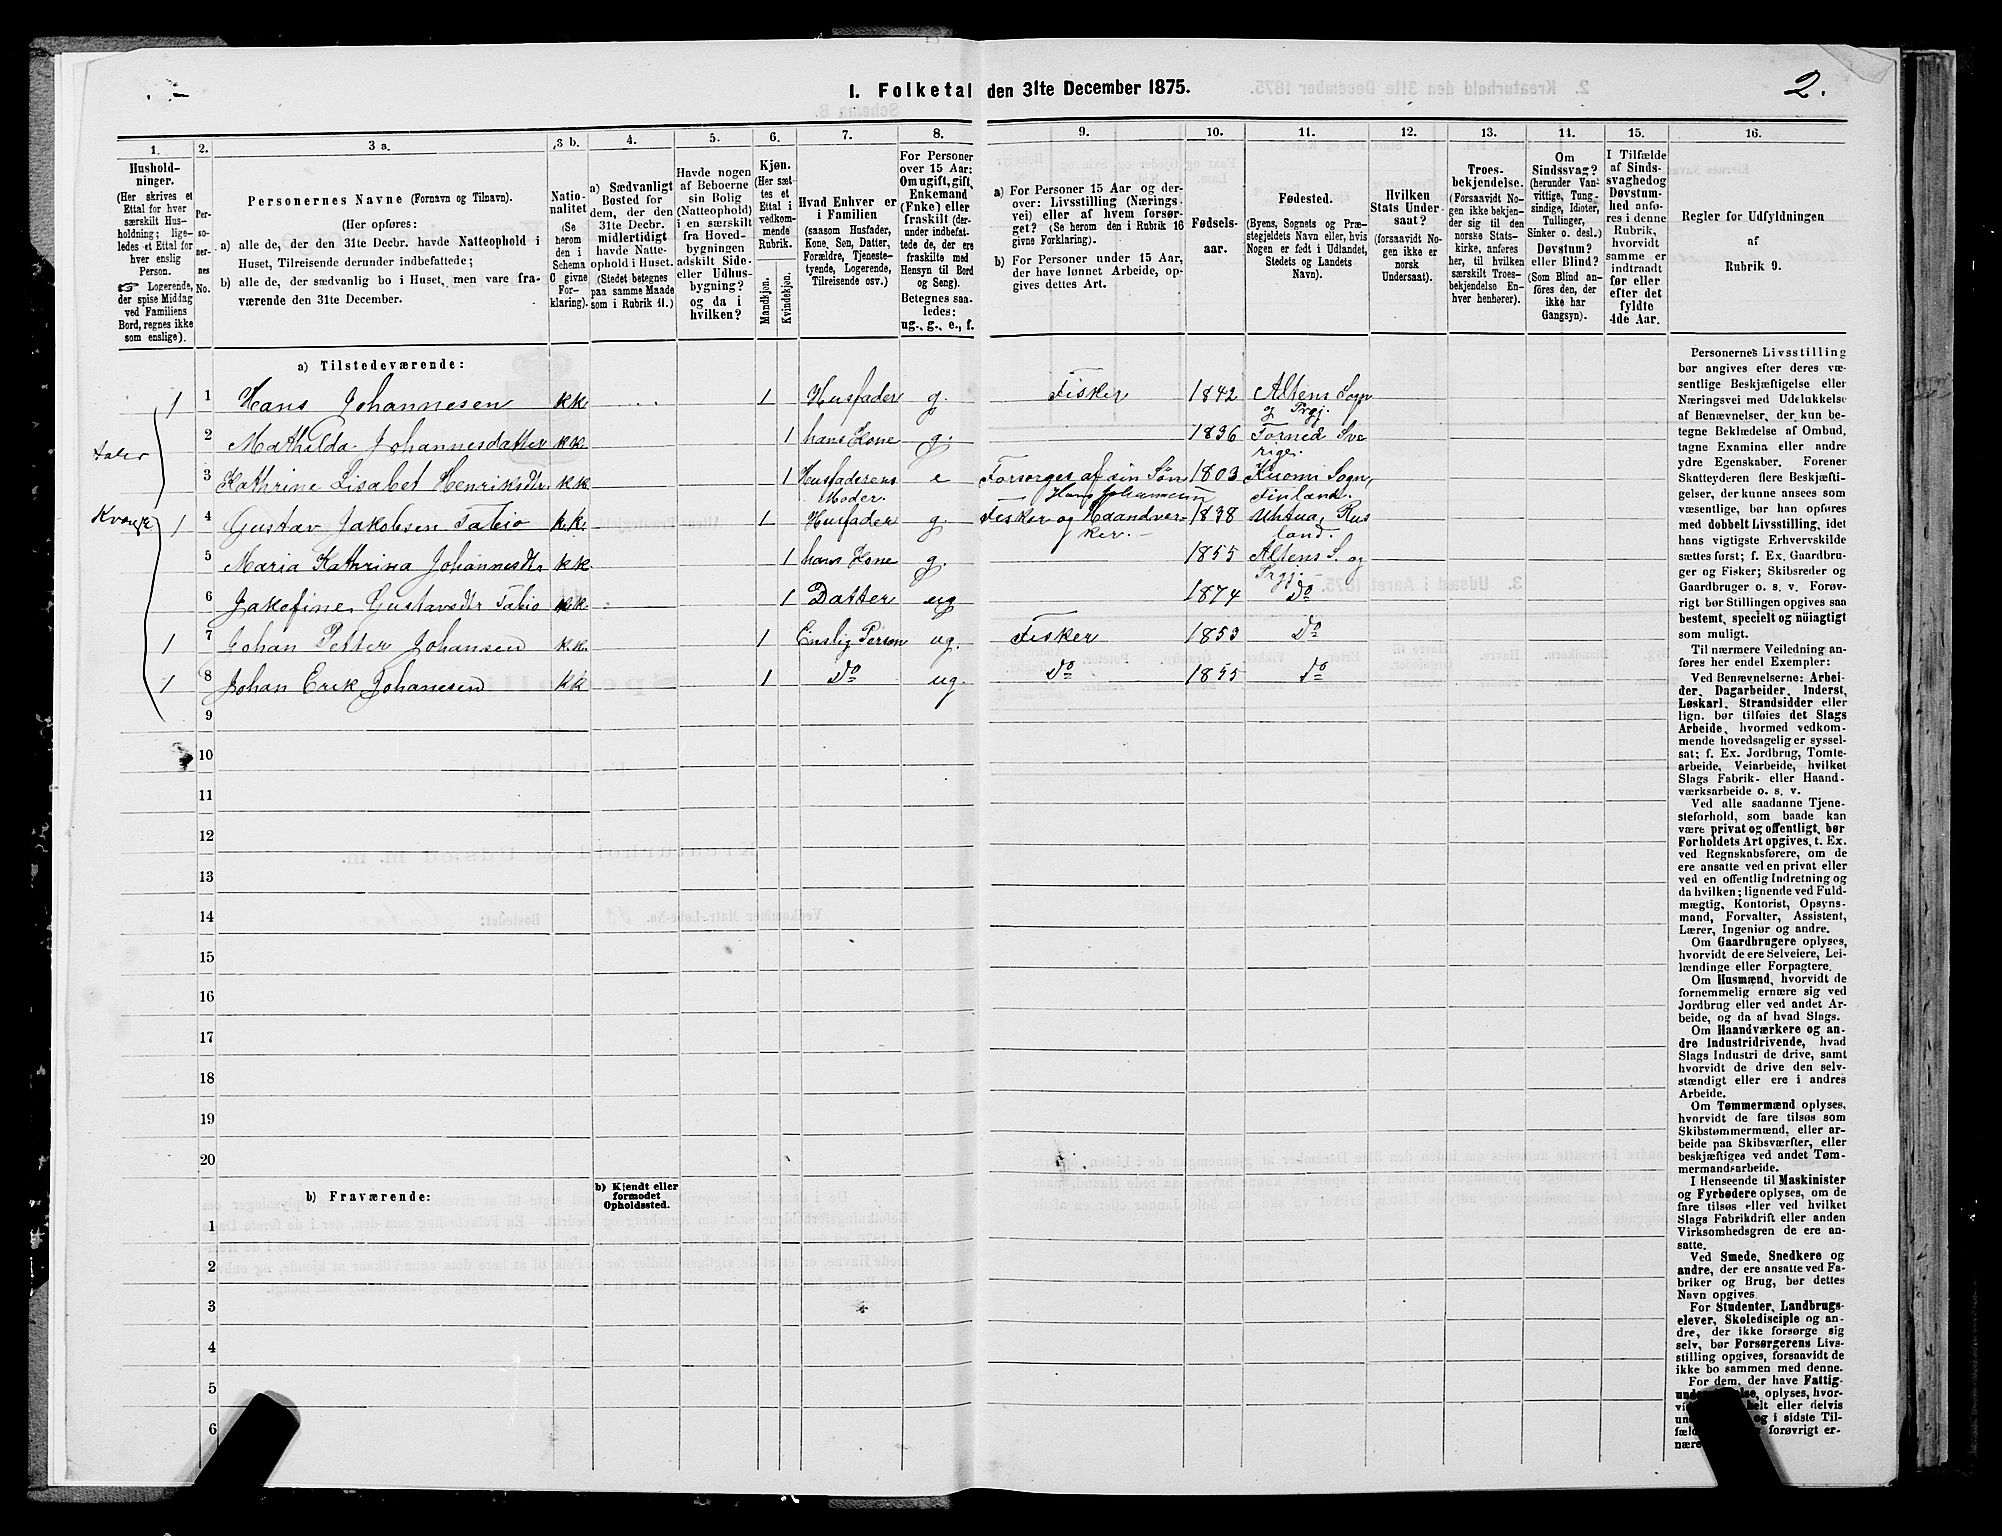 I. Folketal den 31te December 1875.
2.
1.
Husholdninger.
(Her skrives et
Ettal for hver
særskilt Husholdning; ligeledes et Ettal for
hver enslig
Person.
Logerende,
der spise Middag
ved Familiens
Bord, regnes ikke
som enslige).
2.
Personernes
No.
3 a.
Personernes Navne (Fornavn og Tilnavn).
(Her opføres:
a) alle de, der den 31te Decbr. havde Natteophold i
Huset, Tilreisende derunder indbefattede;
b) alle de, der sædvanlig bo i Huset, men vare fraværende den 31te December.
3 b.
Nationalitet
(Se
herom
den i
Schema
C givne
Forklaring).
4.
a) Sædvanligt
Bosted for
dem, der den
31te Decbr.
midlertidigt
havde Natteophold i Huset.
(Stedet betegnes
paa samme Maade
som i Rubrik 11.)
5.
Havde nogen
af Beboerne
sin Bolig
(Natteophold)
i en særskilt
fra Hovedbygningen
adskilt Side-
eller Udhusbygning?
og da i
hvilken?
6.
Kjøn.
(Her sættes et
Ettal i
vedkommende
Rubrik.
Mandkjøn.
Kvindekjøn.
7.
Hvad Enhver er
i Familien
(saasom Husfader,
Kone, Søn, Datter,
Forældre, Tjenestetyende, Logerende,
Tilreisende osv.)
8.
For Personer
over 15 Aar:
Om ugift, gift,
Enkemand
(Enke) eller
fraskilt (derunder indbefattede de, der ere
fraskilte med
Hensyn til Bord
og Seng).
Betegnes saaledes:
ug., g., e., f.
9.
a) For Personer 15 Aar og derover: Livsstilling (Næringsvei) eller af hvem forsørget? (Se herom den i Rubrik 16
givne Forklaring).
b) For Personer under 15 Aar,
der have lønnet Arbeide, opgives dettes Art.
10.
Fødselsaar.
11.
Fødested.
(Byens, Sognets og Præstegjeldets Navn eller, hvis
Nogen er født i Udlandet,
Stedets og Landets
Navn).
12.
Hvilken
Stats Undersaat?
(forsaavidt Nogen ikke er
norsk
Undersaat).
13.
Troesbekjendelse.
(Forsaavidt Nogen ikke bekjender sig til den
norske Statskirke, anføres
her, til hvilken
særskilt Troesbekjendelse Enhver henhører).
14.
Om
Sindssvag?
(herunder Vanvittige, Tungsindige, Idioter,
Tullinger,
Sinker o. desl.)
Døvstum?
eller Blind?
(Som Blind anføres den, der
ikke har
Gangsyn).
15.
I Tilfælde
af Sindssvaghed og
Døvstumhed anføres i denne
Rubrik,
hvorvidt
samme er
indtraadt
før eller
efter det
fyldte
4de Aar.
16.
Regler for Udfyldningen
af
Rubrik 9.
a) Tilstedeværende:
1 1 Hans Johannesen kk 1 Husfader g. Fisker 1842 Altens Sogn
og Prgj.
2 Mathilda Johannesdatter kk 1 hans Kone g. 1836 Torneå Sverige.
taler
3 Kathrine Lisabet Henriksdtr kk 1 Husfaderens e Forsørges af sin Søn 1803 Sogn,
Moder. Hans Johannesen Finland.
Kvænsk
1 4 Gustav Jakobsen Tabio kk. 1 Husfader g. Fisker og Haandver- 1838 Uhtua, Rus
ker.- land.
5 Maria Kathrina Johannesdtr kk. 1 hans Kone g. 1855 Altens S. og
Prgj.
6 Jakofine Gustavsdtr Tabio kk. 1 Datter ug 1874 Do
1 7 Johan Petter Johansen kk. 1 Enslig Person ug. Fisker 1853 Do
1 8 Johan Erik Johanesen kk 1 Do ug. Do 1855 Do
9
10
11
12
13
14
15
16
17
18
19
20
b) Fraværende:
b) Kjendt eller
formodet
Opholdssted.
1
2
3
4
5
6
Personernes Livsstilling
bør angives efter deres væsentlige Beskjæftigelse eller
Næringsvei med Udelukkelse
af Benævnelser, der kun betegne Beklædelse af Ombud,
tagne Examina eller andre
ydre Egenskaber. Forener
Skatteyderen flere Beskjæftigelser, der kunne ansees som
væsentlige, bør han opføres
med dobbelt Livsstilling, idet
hans vigtigste Erhvervskilde
sættes først; f. Ex. Gaardbruger og Fisker; Skibsreder og
Gaardbruger o. s. v. Forøvrigt bør Stillingen opgives saa
bestemt, specielt og nöiagtigt
som muligt.
Til nærmere Veiledning anføres her endel Exempler:
Ved Benævnelserne: Arbeider, Dagarbeider, Inderst,
Løskarl, Strandsidder eller
lign. bør tilføies det Slags
Arbeide, hvormed vedkommende hovedsagelig er sysselsat; f. Ex. Jordbrug, Tomtearbeide, Veiarbeide, hvilket
Slags Fabrik- eller Haandværksarbeide o. s. v.
Ved alle saadanne Tjenesteforhold, som baade kan
være privat og offentligt, bør
Forholdets Art opgives, t. Ex.
ved Regnskabsførere, om de
ere ansatte ved en privat eller
ved en offentlig Indretning og
da hvilken; lignende ved Fuldmægtig, Kontorist, Opsynsmand, Forvalter, Assistent,
Lærer, Ingeniør og andre.
Om Gaardbrugere oplyses,
hvorvidt de ere Selveiere, Leilændinge eller Forpagtere.
Om Husmænd, hvorvidt de
fornemmelig ernære sig ved
Jordbrug eller ved andet Arbeide, og da af hvad Slags.
Om Haandværkere og andre Industridrivende, hvad
Slags Industri de drive, samt
hvorvidt de drive den selvstændigt eller ere i andres
Arbeide.
Om Tømmermænd oplyses,
hvorvidt de fare tilsøs som
Skibstømmermænd, eller arbeide paa Skibsværfter, eller
beskjæftiges ved andet Tømmermandsarbeide.
I Henseende til Maskinister
og Fyrbødere oplyses, om de
fare tilsøs eller ved hvilket
Slags Fabrikdrift eller anden
Virksomhedsgren de ere ansatte.
Ved Smede, Snedkere og
andre, der ere ansatte ved Fabriker og Brug, bør dettes
Navn opgives.
For Studenter, Landbrugselever, Skoledisciple og andre, der ikke forsørge sig
selv, bør Forsørgerens Livsstilling opgives, forsaavidt de
ikke bo sammen med denne.
For dem, der have Fattig-
oplyses, hvor-
helt eller delvis
og i sidste Til-
forøvrigt er-